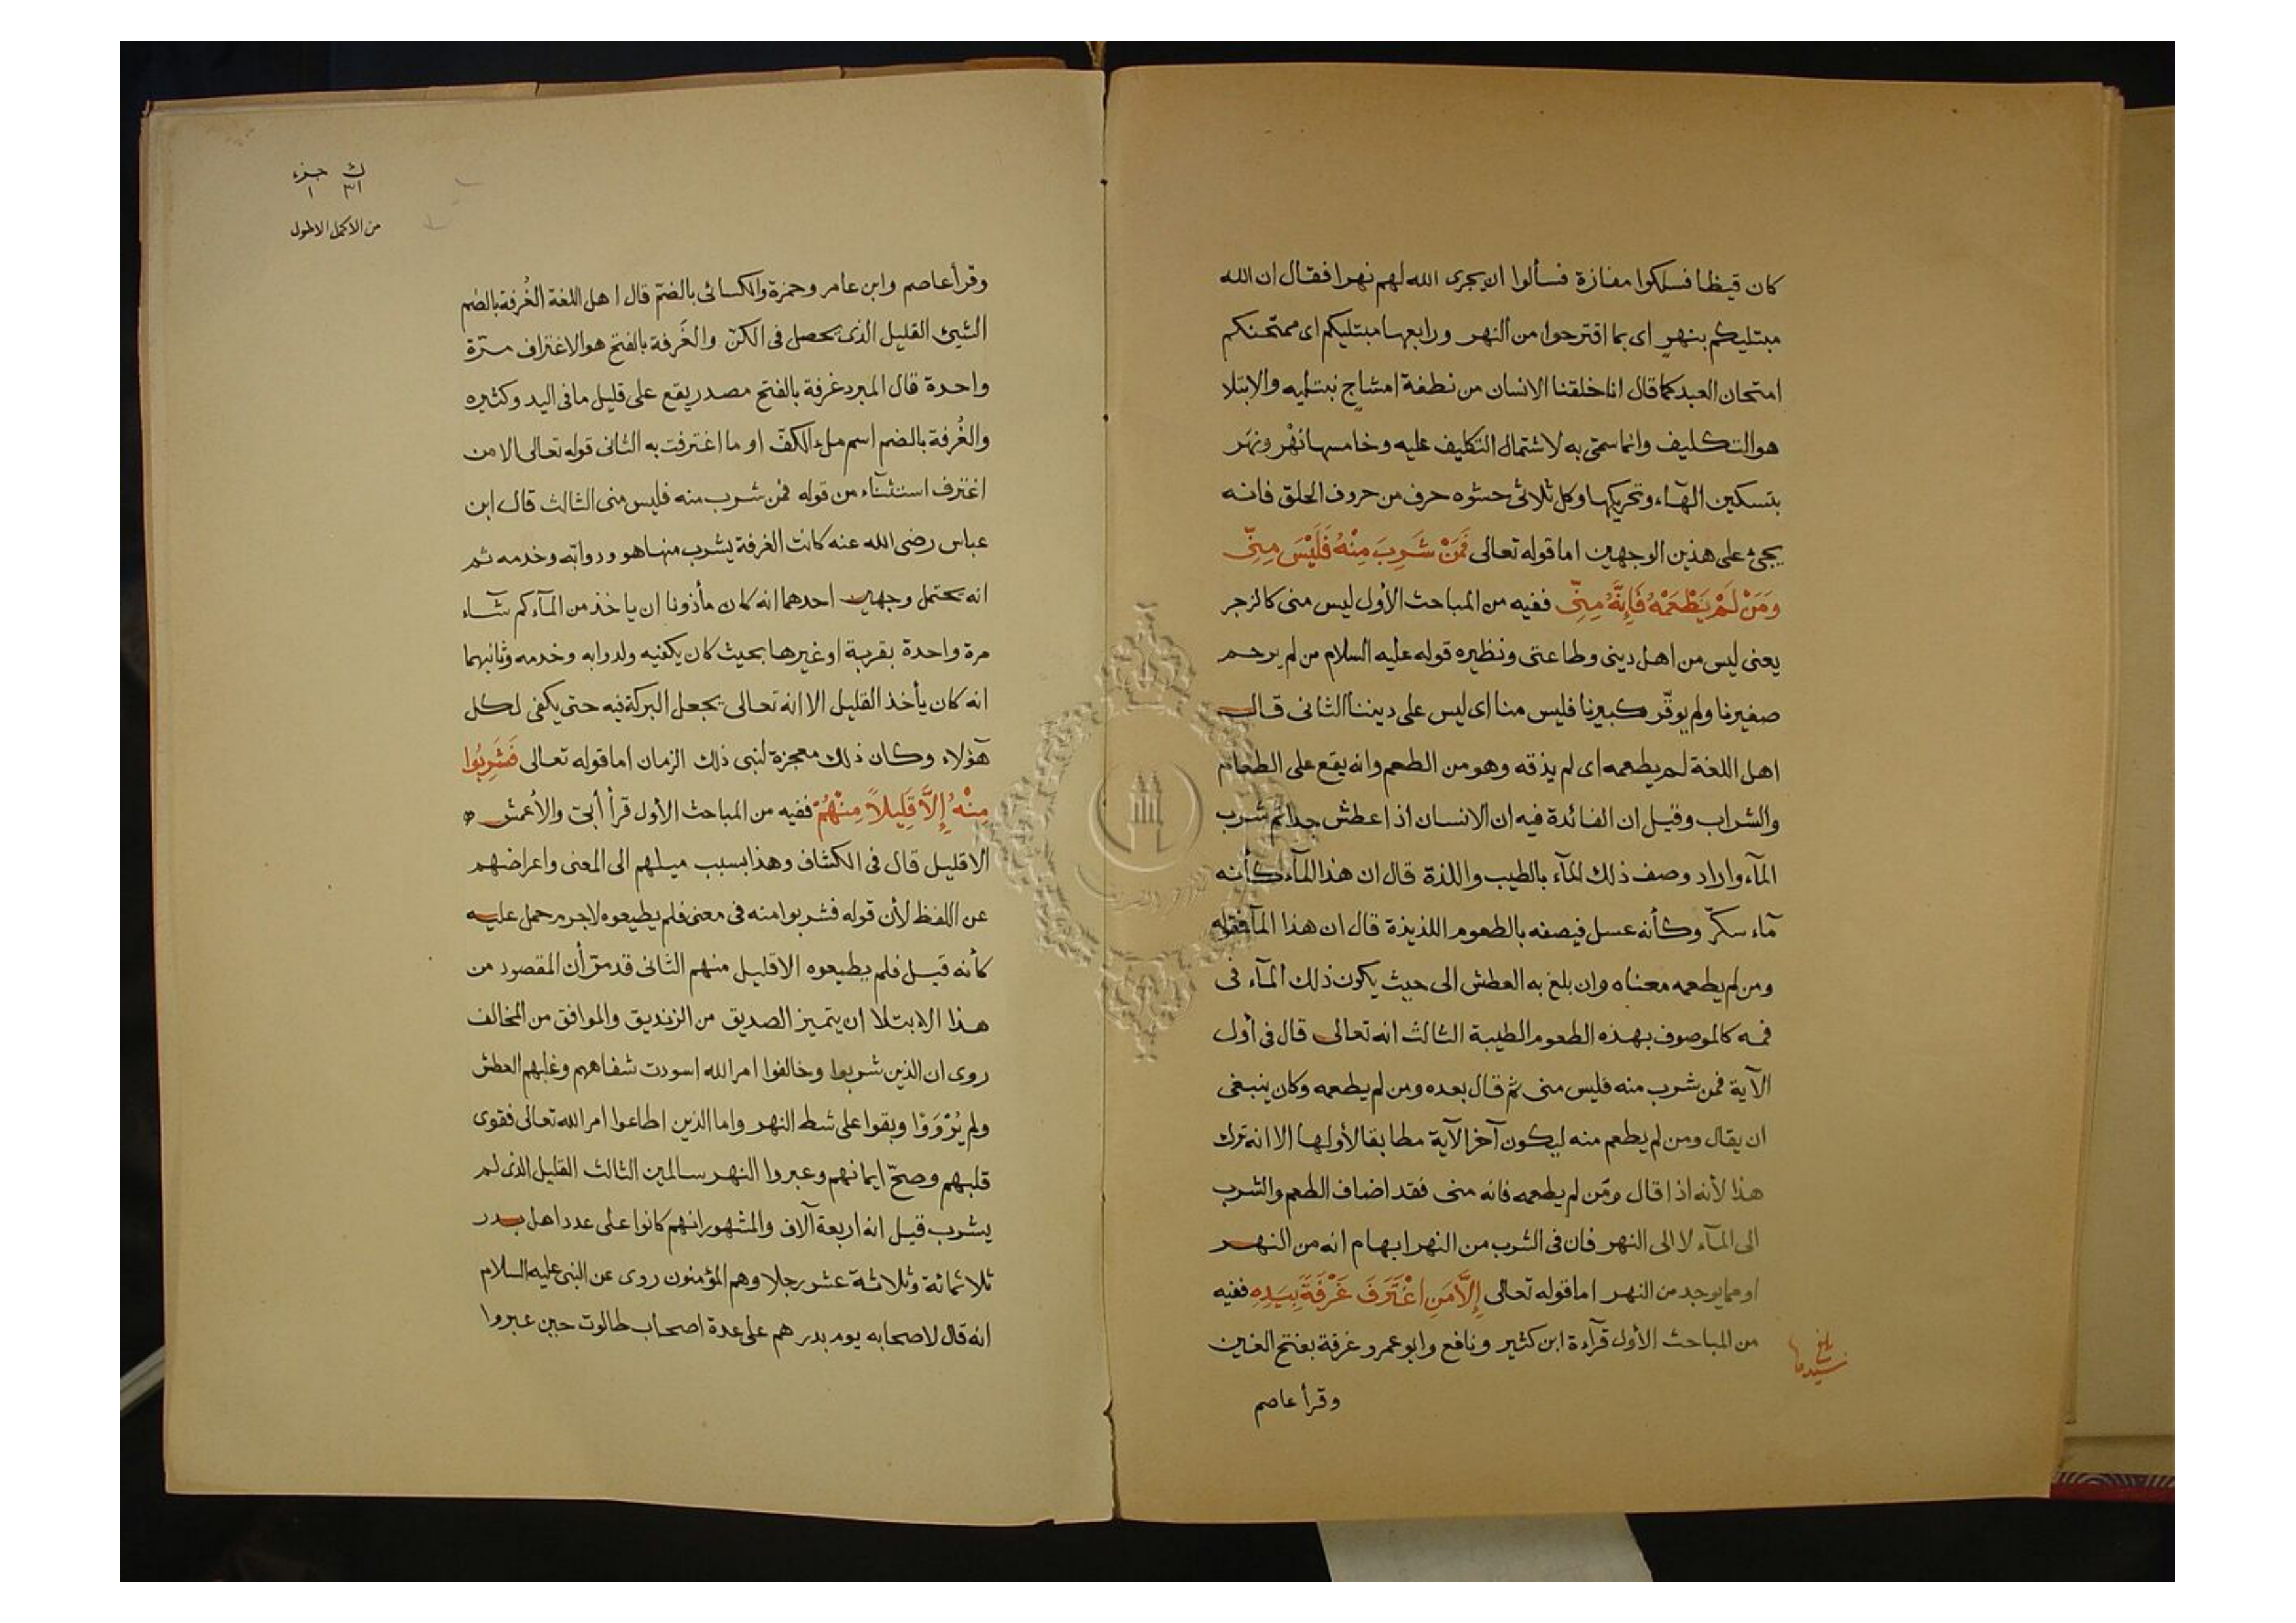 كان قيظا فسلكوا مفازة فسألوا ان يجرى الله لهم نهرا فقال ان الله
مبتليكم بنهرٍ اى بما اقترحوا من النهر ورابعها مبتليكم اى ممتحنكم
امتحان العبد كما قال انا خلقنا الانسان من نطفة امشاج نبتليه والابتلا
هو التكليف وانما سمّى به لاشتمال التكليف عليه وخامسها نهْر ونهَر
بتسكين الهآء وتحريكها وكل ثلاثى حشوه حرف من حروف الحلق فانه
يجئ على هذين الوجهين اما قوله تعالى فَمَنْ شَرِبَ مِنْهُ فَلَيْسَ مِنِّى
وَمَنْ لَمْ يَطْعَمْهُ فَإِنَّهُ مِنِّى ففيه من المباحث الأول ليس منى كالزجر
يعنى ليس من اهل دينى وطاعتى ونظيره قوله عليه السلام من لم يرحم
صغيرنا ولم يوقّر كبيرنا فليس منا اى ليس على ديننا الثانى قال
اهل اللغة لم يطعمه اى لم يذقه وهو من الطعم وانه يقع على الطعام
والشراب وقيل ان الفائدة فيه ان الانسان اذا عطش جدا ثم شرب
المآء واراد وصف ذلك المآء بالطيب واللذة قال ان هذا المآء كأنه
مآء سكّر وكأنه عسل فيصفه بالطعوم اللذيذة قال ان هذا المآ فقوله
ومن لم يطعمه معناه وان بلغ به العطش الى حيث يكون ذلك المآء فى
فمه كالموصوف بهذه الطعوم الطيبة الثالث انه تعالى قال فى أول
الآية فمن شرب منه فليس منى ثم قال بعده ومن لم يطعمه وكان ينبغى
ان يقال ومن لم يطعم منه ليكون آخر الآية مطابقا لأولها الا انه ترك
هذا لأنه اذا قال ومن لم يطعمه فانه منى فقد اضاف الطعم والشرب
الى المآء لا الى النهر فان فى الشرب من النهر ابهام انه من النهر
او مما يوجد من النهر اما قوله تعالى إِلَّا مَنِ اغْتَرَفَ غَرْفَةً بِيَدِهِ ففيه
من المباحث الأول قرآءة ابن كثير ونافع وابو عمرو غرفة بفتح الغين
وقرأ عاصم
بلغ
جزء
٣١ ١
من الاكمل الاطول
وقرأ عاصم وابن عامر وحمزة والكسائى بالضمّ قال اهل اللغة الغُرفة بالضم
الشيئ القليل الذى يحصل فى الكفّ والغَرفة بالفتح هو الاغتراف مرّة
واحدة قال المبرد غرفة بالفتح مصدر يقع على قليل ما فى اليد وكثيره
والغُرفة بالضم اسم ملء الكفّ او ما اغترفت به الثانى قوله تعالى الا من
اغترف استثنآء من قوله فمن شرب منه فليس منى الثالث قال ابن
عباس رضى الله عنه كانت الغرفة يشرب منها هو ودوابّه وخدمه ثم
انه يحتمل وجهين احدهما انه كان مأذونا ان ياخذ من المآء كم شآء
مرة واحدة بقربة او غيرها بحيث كان يكفيه ولدوابه وخدمه وثانيهما
انه كان يأخذ القليل الا انه تعالى يجعل البركة فيه حتى يكفى لكل
هؤلاء وكان ذلك معجزة لنبى ذلك الزمان اما قوله تعالى فَشَرِبُوا
مِنْهُ إِلَّا قَلِيلاً مِنْهُمْ ففيه من المباحث الأول قرأ أبىّ والأعمش
الا قليل قال فى الكشاف وهذا بسبب ميلهم الى المعنى واعراضهم
عن اللفظ لأن قوله فشربوا منه فى معنى فلم يطيعوه لاجرم حمل عليه
كأنه قيل فلم يطيعوه الا قليل منهم الثانى قد مرّ أن المقصود من
هذا الابتلا ان يتميز الصديق من الزنديق والموافق من المخالف
روى ان الذين شربوا وخالفوا امر الله اسودت شفاههم وغلبهم العطش
ولم يُرْوَوْا وبقوا على شط النهر واما الذين اطاعوا امر الله تعالى فقوى
قلبهم وصحّ ايمانهم وعبروا النهر سالمين الثالث القليل الذى لم
يشرب قيل انه اربعة آلاف والمشهور انهم كانوا على عدد اهل بدر
ثلاثمائة وثلاثة عشر رجلا وهم المؤمنون روى عن النبى عليه السلام
انه قال لاصحابه يوم بدر هم على عدة اصحاب طالوت حين عبروا